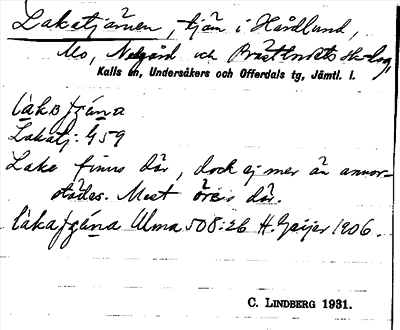 Lakatjärnen, tjärn i Hårdlund,
Mo, Nedgård och Prästbordets skog,
Kalls sn, Undersåkers och Offerdals tg, Jämtl. l.
Lakatj: G59
Lake finns där, dock ej mer än annor-
städes. Mest öring där.
Ulma 508:26 H. Geijer 1906.
C. LINDBERG 1931.